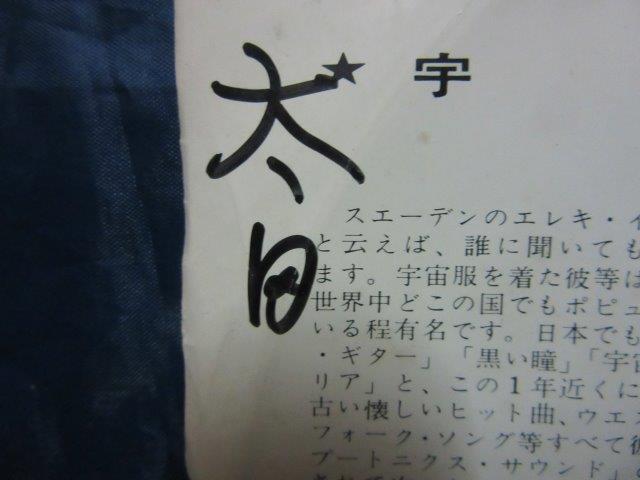 太田
★ 宇
スエーデンのエレキ・イ
と云えば、誰に聞いても
ます。宇宙服を着た彼等は
世界中どこの国でもポピュ
いる程有名です。日本でも
・ギター」「黒い瞳」「宇宙
リア」と、この1年近くに
古い懐しいヒット曲、ウエス
フォーク・ソング等すべて彼
プートニクス・サウンド」の